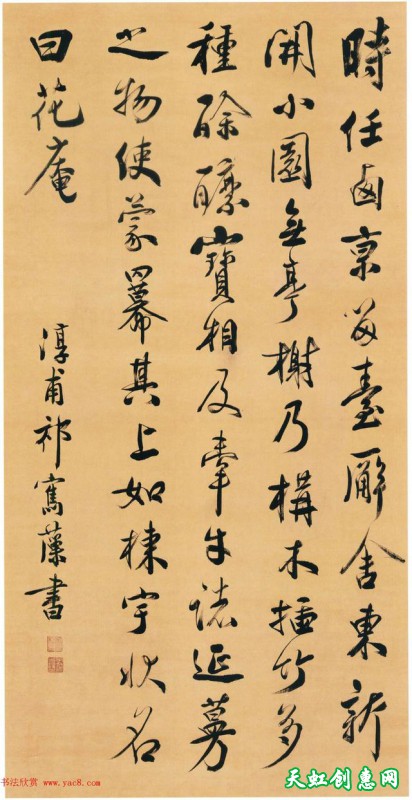 時任西京留臺廨舍東新
開小園無亭榭乃構木插竹多
種酴醾寶相及牽牛諸延蔓
之物使蒙冪其上如棟宇狀名
曰花庵
淳甫祁寯藻書
书法欣赏 www.yac8.com
天虹创惠网